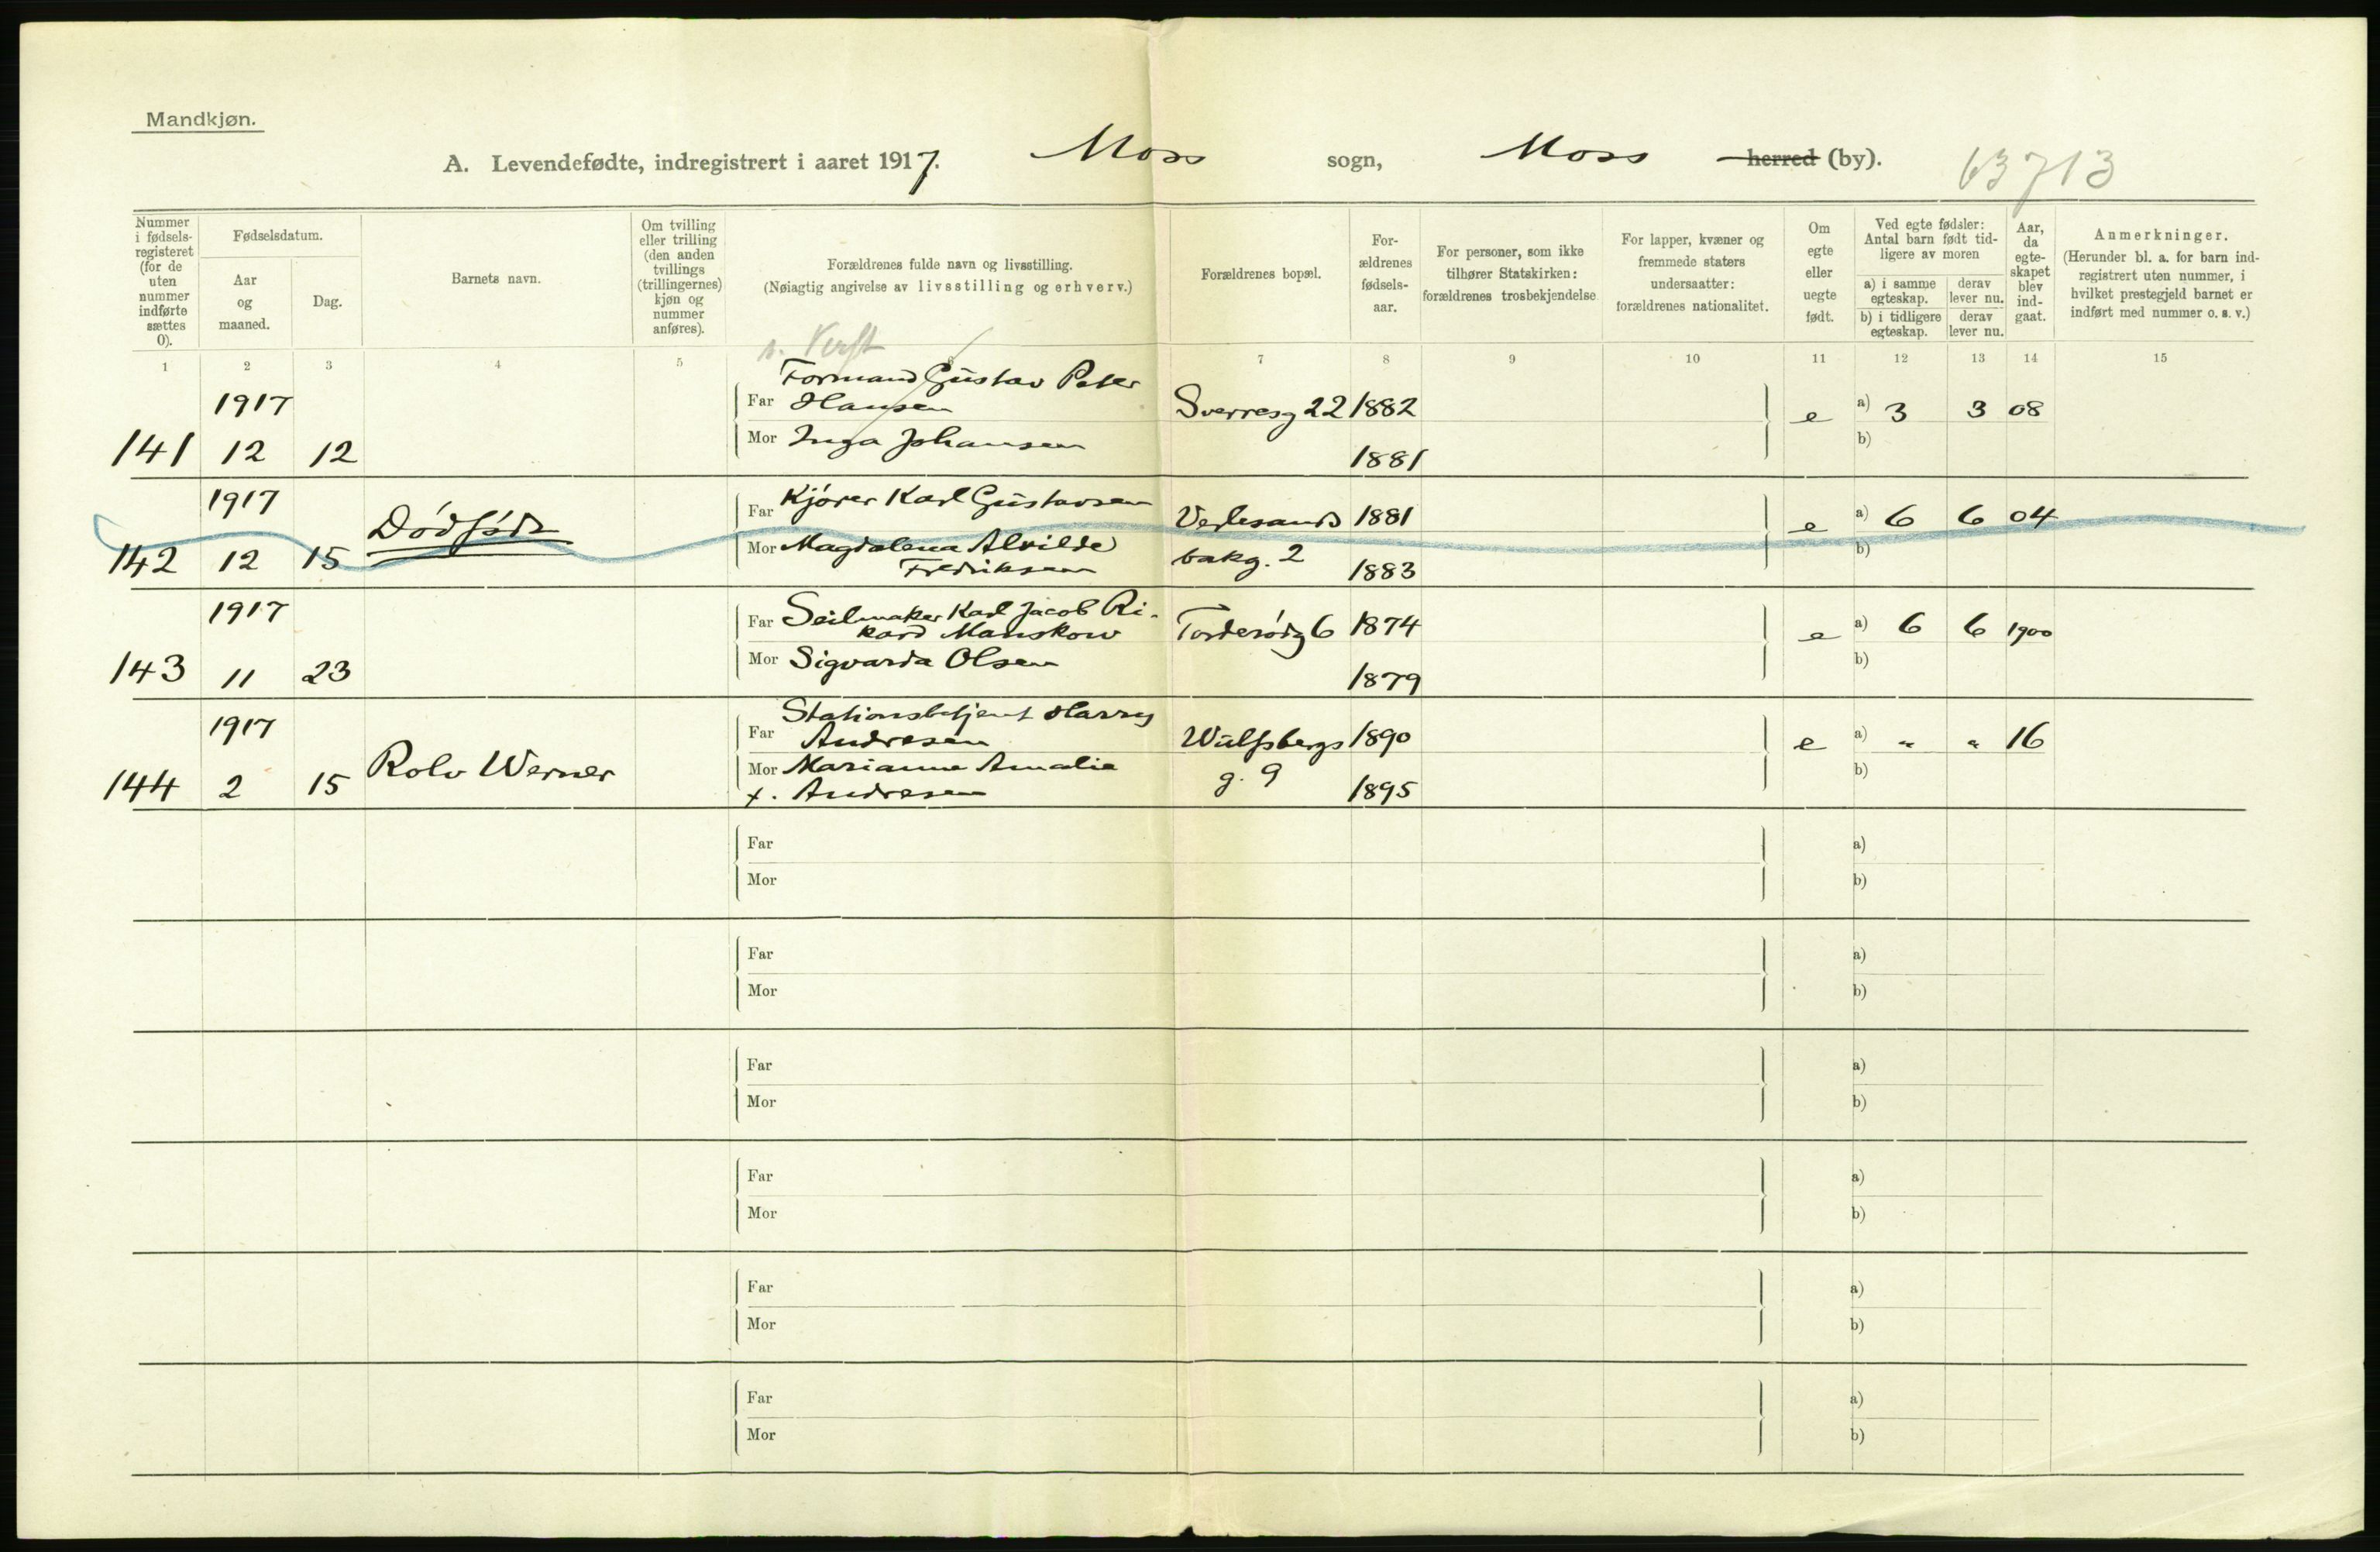 Mandkjøn.
A. Levendefødte, indregistrert i aaret 1917. Moss sogn, Moss herred (by). 63713
Nummer i fødsels-registeret (for de uten nummer indførte sættes 0).
Fødselsdatum.
Aar og maaned.
Dag.
Barnets navn.
Om tvilling eller trilling (den anden tvillings (trillingernes) kjøn og nummer anføres).
Forældrenes fulde navn og livsstilling.
(Nøiagtig angivelse av livsstilling og erhverv.)
Forældrenes bopæl.
For-ældrenes fødsels-aar.
For personer, som ikke tilhører Statskirken: forældrenes trosbekjendelse
For lapper, kvæner og fremmede staters undersaatter: forældrenes nationalitet.
Om egte eller uegte født.
Ved egte fødsler: Antal barn født tid-ligere av moren
a) i samme egteskap.
derav lever nu.
b) i tidligere egteskap.
derav lever nu.
Aar, da egte-skapet blev ind-gaat.
Anmerkninger.
(Herunder bl. a. for barn ind-registrert uten nummer, i hvilket prestegjeld barnet er indført med nummer o. s. v.)
1 2 3 4 5 6 7 8 9 10 11 12 13 14 15
1917 Formand Gustav Peter
Far Hansen Sverresg 22 1882 e a) 3 3 08
141 12 12 Mor Inga Johansen 1881 b)
1917 Dødfødt Far Kjører Karl Gustavsen Verlesands 1881 e a) 6 6 04
142 12 15 Mor Magdalena Alvilde bakg. 2 b)
Fredriksen 1883
1917 Far Seilmaker Karl Jacob Ri-
kard Manskow Tordenrødg 6 1874 e a) 6 6 1900
143 11 23 Mor Sigvarda Olsen 1879 b)
1917 Stationsbetjent Harry
Far Andresen Wulfsbergs 1890 e a) " " 16
144 2 15 Rolv Werner Mor Marianne Amalie g. 9 b)
f. Andresen 1895
Far a)
Mor b)
Far a)
Mor b)
Far a)
Mor b)
Far a)
Mor b)
Far a)
Mor b)
Far a)
Mor b)